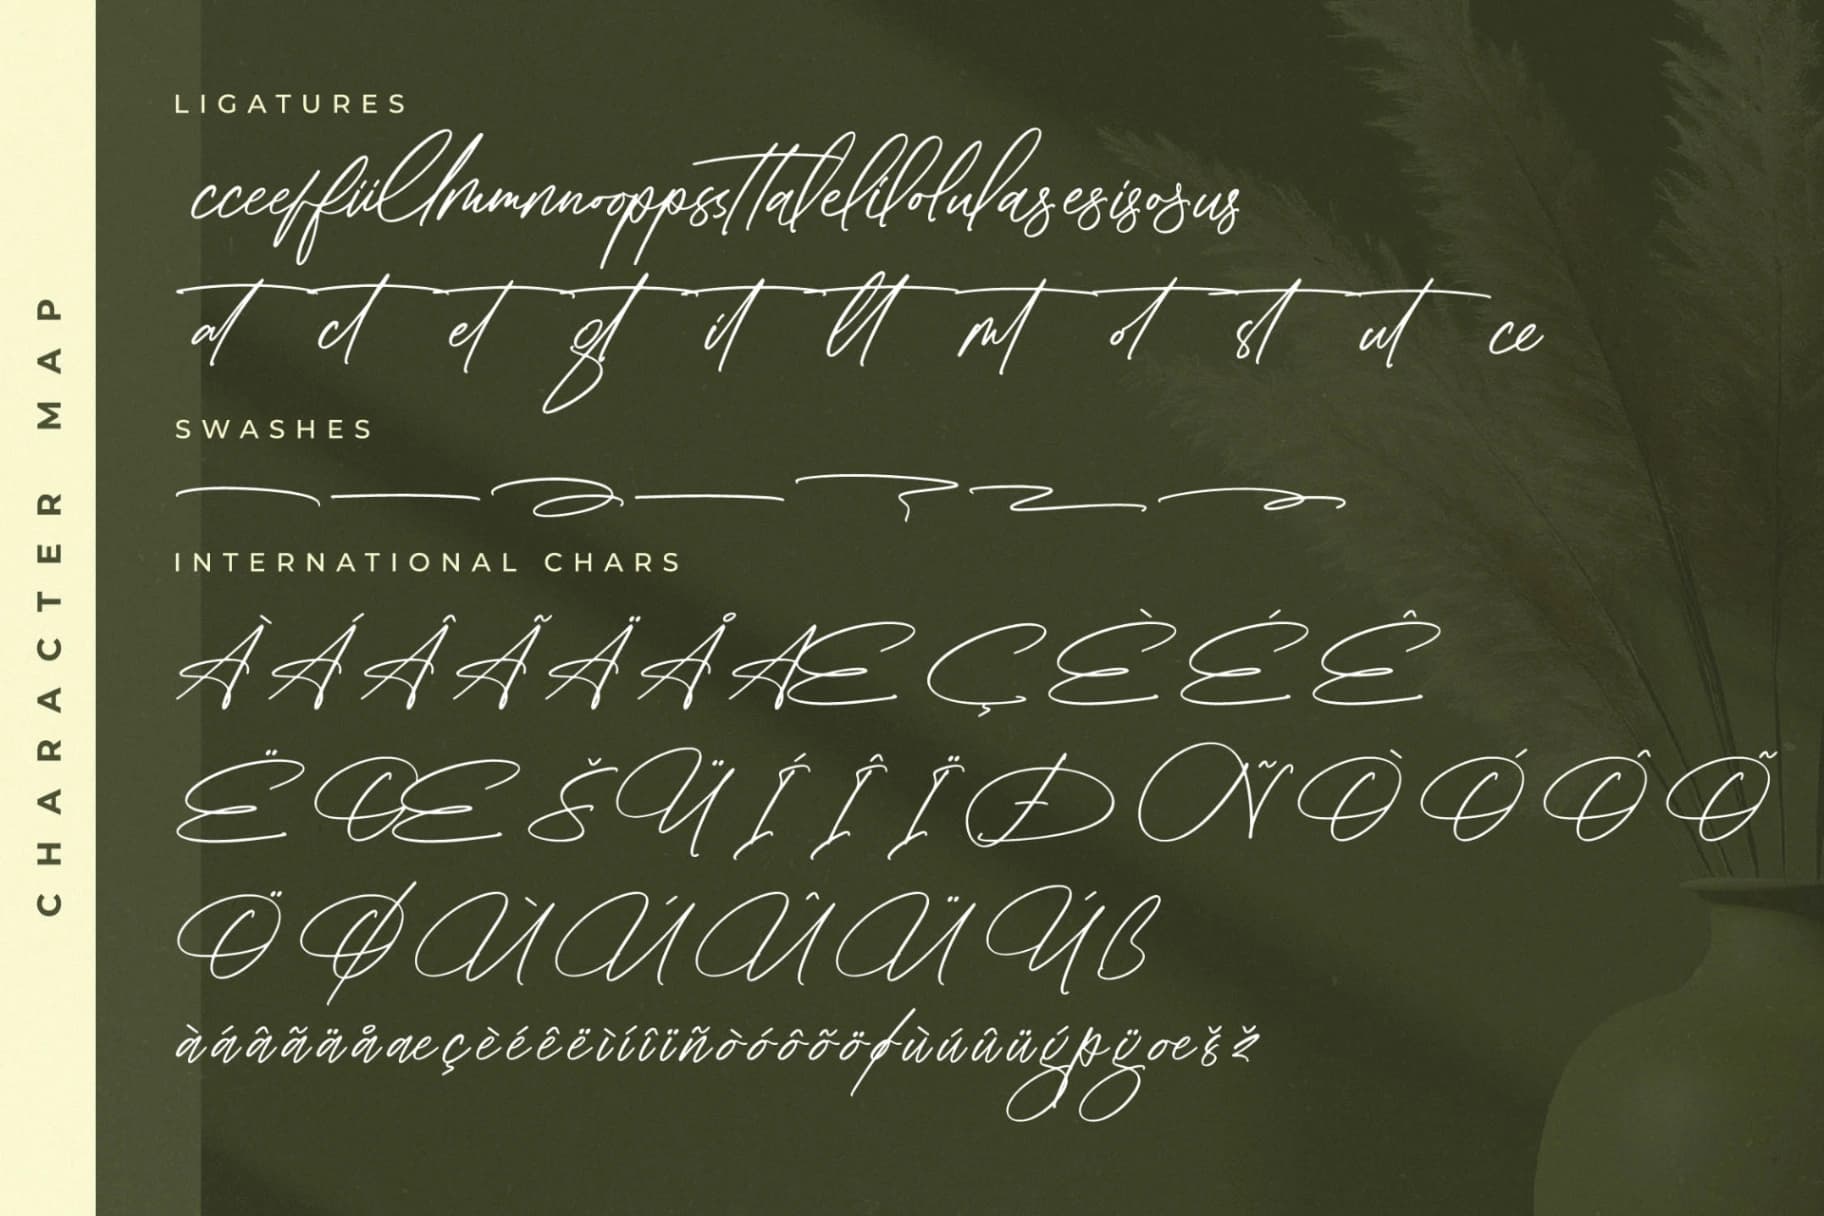 CHARACTER MAP
LIGATURES
cceeffiillmmnnooppssttalelilolulasesisosus
at ct et gt it lt mt ot st ut ce
SWASHES
INTERNATIONAL CHARS
ÀÁÂÃÄÅÆÇÈÉÊ
ËŒŠŸÍÎÏÐÑÒÓÔÕ
ÖØÙÚÛÜÝß
àáâãäåæçèéêëìíîïñòóôõöøùúûüýþÿœšž